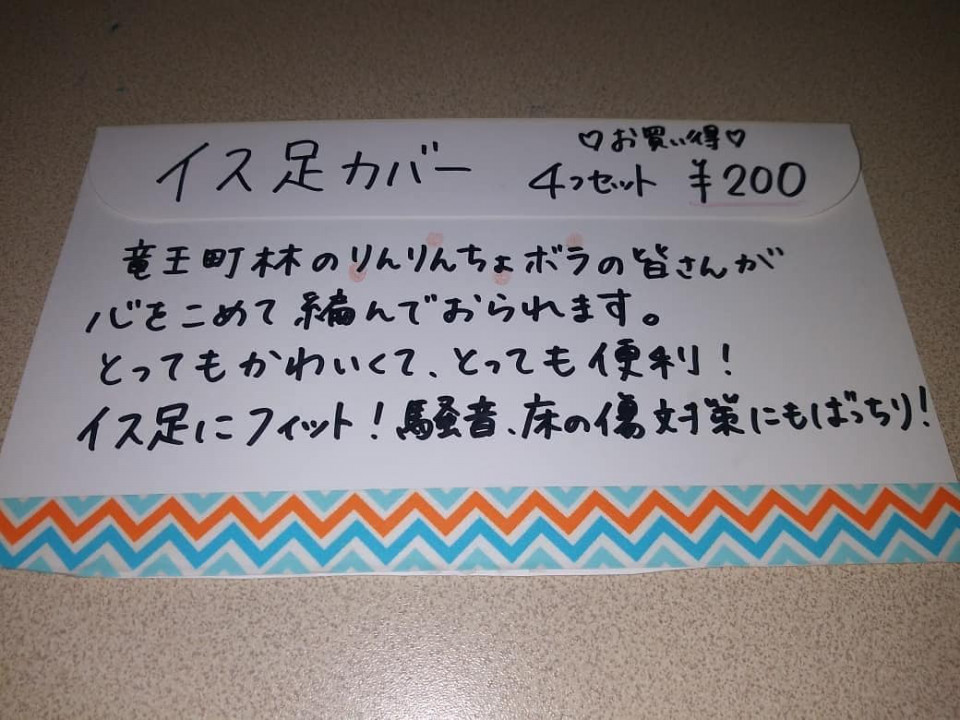 イス足カバー
♡お買い得♡
4つセット ¥200
竜王町林のりんりんちょボラの皆さんが
心をこめて編んでおられます。
とってもかわいくて、とっても便利！
イス足にフィット！騒音、床の傷対策にもばっちり！